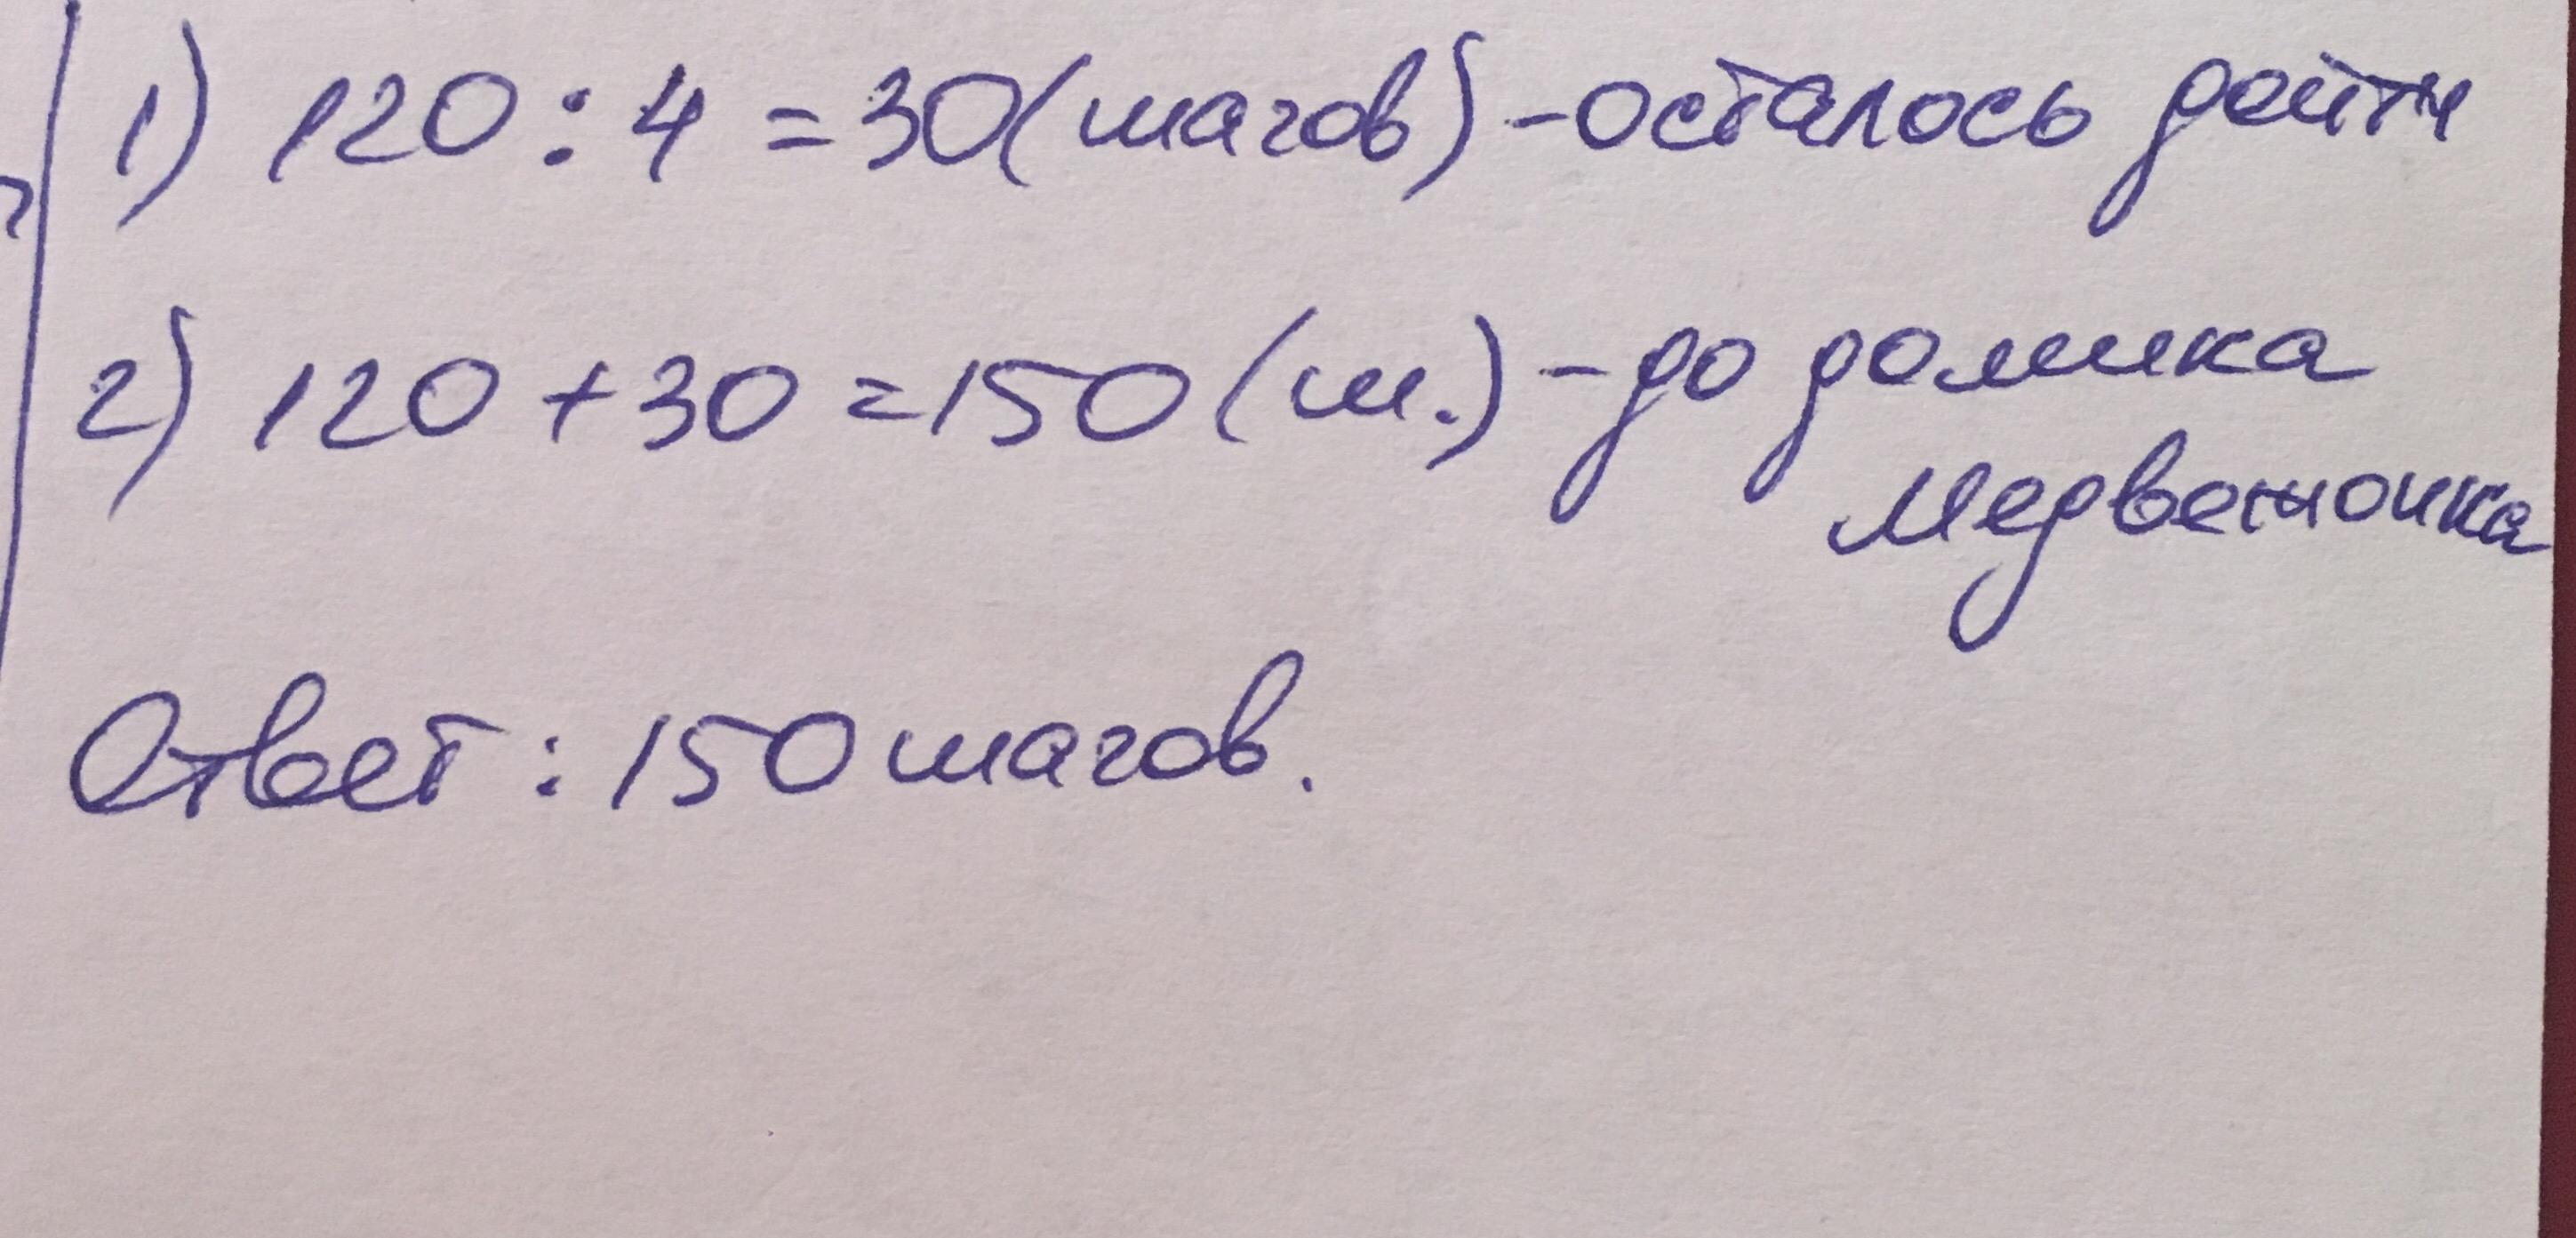 1) 120 : 4 = 30 (шагов) - осталось дойти
2) 120 + 30 = 150 (ш.) - до домика
Медвежонка
Ответ : 150 шагов.